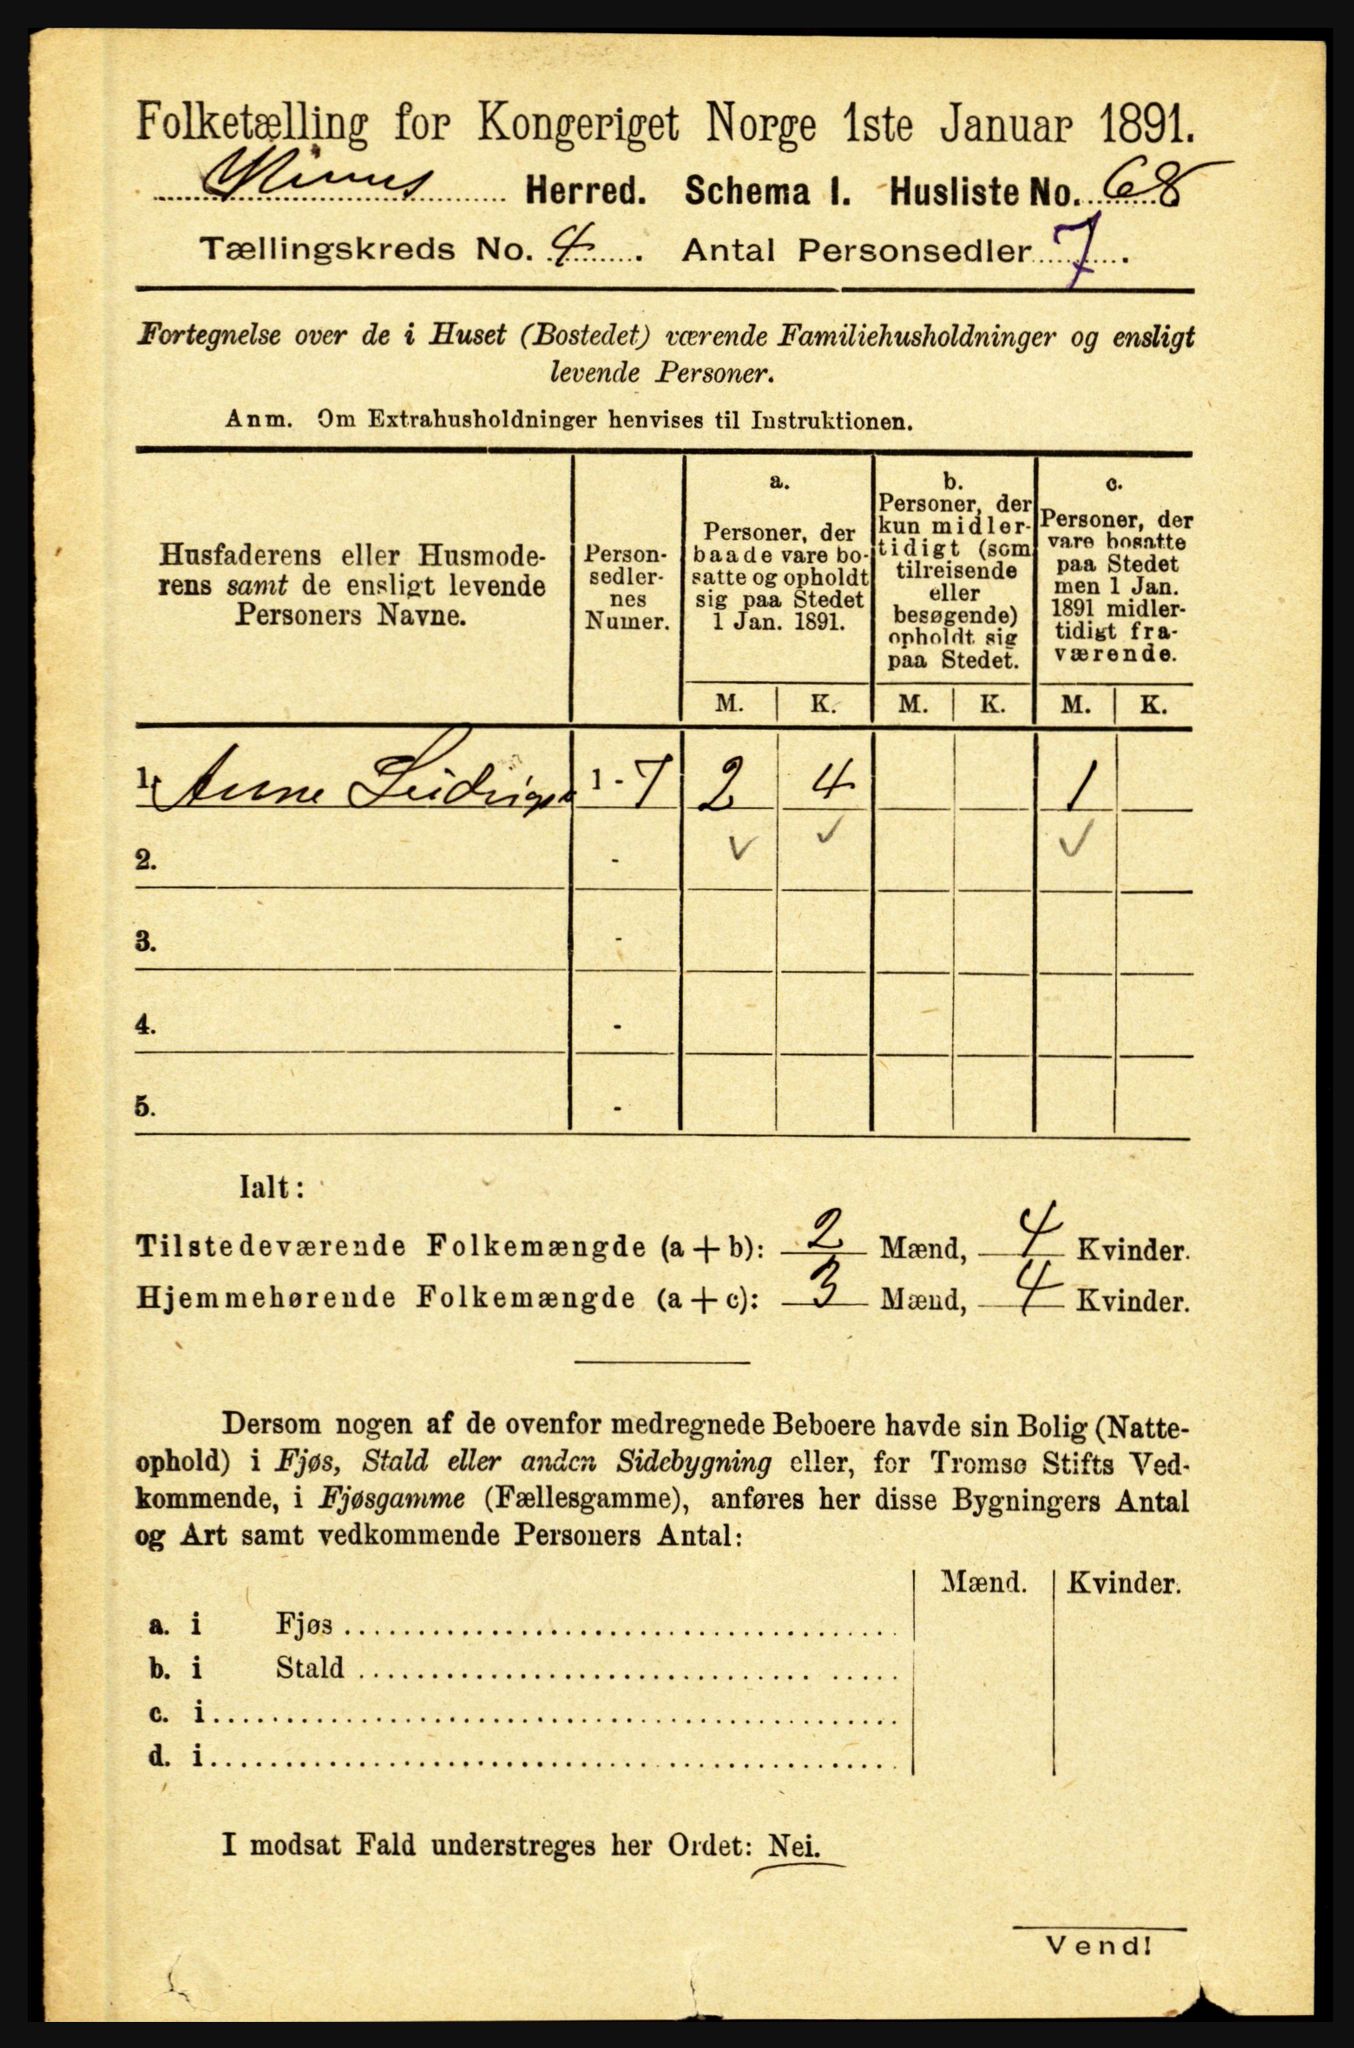 Folketælling for Kongeriget Norge 1ste Januar 1891.
Kinns Herred. Schema I. Husliste No. 68
Tællingskreds No. 4. Antal Personsedler 7.
Fortegnelse over de i Huset (Bostedet) værende Familiehusholdninger og ensligt
levende Personer.
Anm. Om Extrahusholdninger henvises til Instruktionen.
Husfaderens eller Husmode-
rens samt de ensligt levende
Personers Navne.
Person-
sedler-
nes
Numer.
a.
Personer, der
baade vare bo-
satte og opholdt
sig paa Stedet
1 Jan. 1891.
b.
Personer, der
kun midler-
tidigt (som
tilreisende
eller
besøgende)
opholdt sig
paa Stedet.
c.
Personer, der
vare bosatte
paa Stedet
men 1 Jan.
1891 midler-
tidigt fra-
værende.
M. K. M. K. M. K.
1. Anne 1 - 7 2 4 1
2. - ✓ ✓ ✓
3. -
4. -
5. -
Ialt:
Tilstedeværende Folkemængde (a + b): 2 Mænd, 4 Kvinder.
Hjemmehørende Folkemængde (a + c): 3 Mænd, 4 Kvinder.
Dersom nogen af de ovenfor medregnede Beboere havde sin Bolig (Natte-
ophold) i Fjøs, Stald eller anden Sidebygning eller, for Tromsø Stifts Ved-
kommende, i Fjøsgamme (Fællesgamme), anføres her disse Bygningers Antal
og Art samt vedkommende Personers Antal:
Mænd. Kvinder.
a. i Fjøs
b. i Stald
c. i
d. i
I modsat Fald understreges her Ordet: Nei.
Vend!